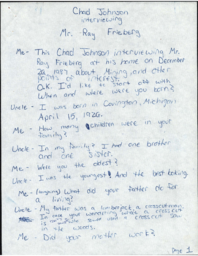 Chad Johnson
interviewing
Mr. Ray Frieberg
Me - This Chad Johnson interviewing Mr.
Ray Frieberg at his home on December
26 1987 about Mining and other
points of interest.
O.K. I'd like to start off with
When and where were you born?
Uncle - I was born in Covington, Michigan
April 15, 1926.
Me - How many children were in your
family?
Uncle - In my family? I had one brother
and one sister.
Me - Were you the oldest?
Uncle - I was the youngest! And the best looking.
Me - (laughing) What did your brother do for
a living?
Uncle - My brother was a lumberjack a
in the woods.
Me - Did your mother work?
Page 1